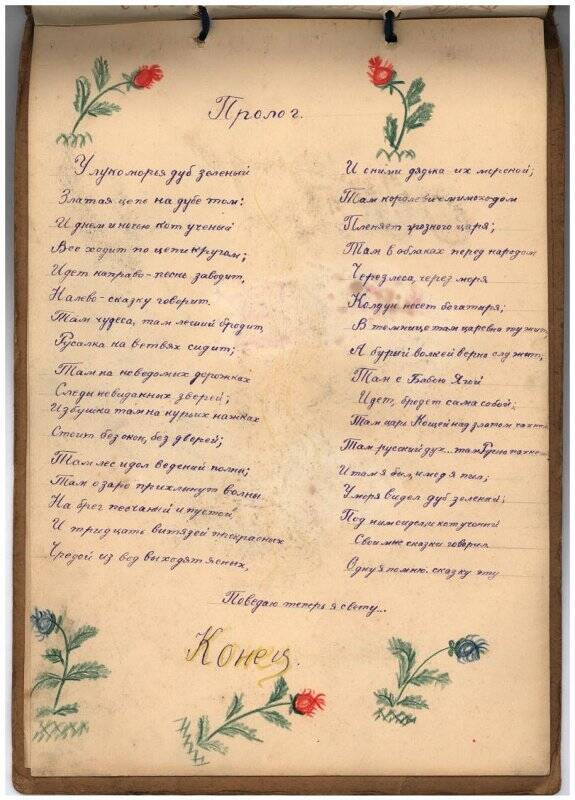 Пролог.
У лукоморья дуб зеленый
Златая цепь на дубе том:
И днем и ночью кот ученый
Все ходит по цепи кругом;
Идет направо - песнь заводит,
Налево - сказку говорит.
Там чудеса, там леший бродит,
Русалка на ветвях сидит;
Там на неведомых дорожках
Следы невиданных зверей;
Избушка там на курьих ножках
Стоит без окон, без дверей;
Там лес и дол ведений полны;
Там о заре прихлынут волны
На брег песчаный и пустой,
И тридцать витязей прекрасных
Чредой из вод выходят ясных,
И с ними дядька их мерской;
Там королевич мимоходом
Пленяет грозного царя;
Там в облаках перед народом
Через леса, через моря
Колдун несет богатыря;
В темнице там царевна тужит,
А бурый волк ей верно служит;
Там с Бабою Ягой
Идет, бредет сама собой;
Там царь Кощей над златом
Там русский дух... там Русью
И там я был, и мед я пил;
У моря видел дуб зеленый;
Под ним сидел и кот ученый
Свои мне сказки говорил
Одну я помню. сказку эту
Поведаю теперь я свету...
Конец.